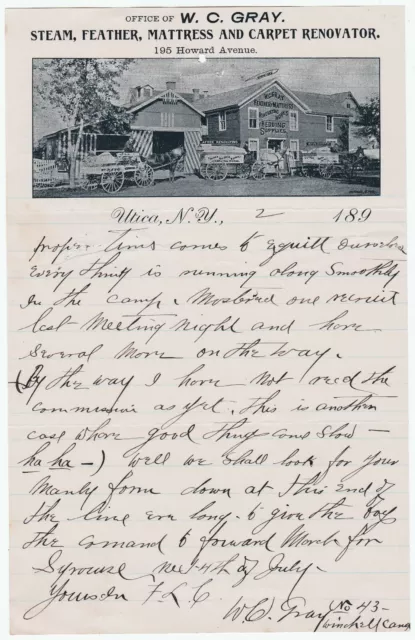 OFFICE OF W. C. GRAY.
STEAM, FEATHER, MATTRESS AND CARPET RENOVATOR.
195 Howard Avenue.
W.C. GRAY
FEATHER & MATTRESS
BEDDING
SUPPLIES
Utica, N. Y., 2 189
proper time comes to equitt ourselves
Every thing is running along smoothly
in the camp. Mustered one recruit
last Meeting night and have
several more on the way.
(By the way I have not recd the
commission as yet. This is another
case where good things come slow –
ha ha –) well we shall look for your
Manly form down at this end of
the line ere long. to give the boys
the comand to forward March for
Syracuse next 4th of July.
Yours In F. L. C.
W. C. Gray No 43 –
Winchell Camp